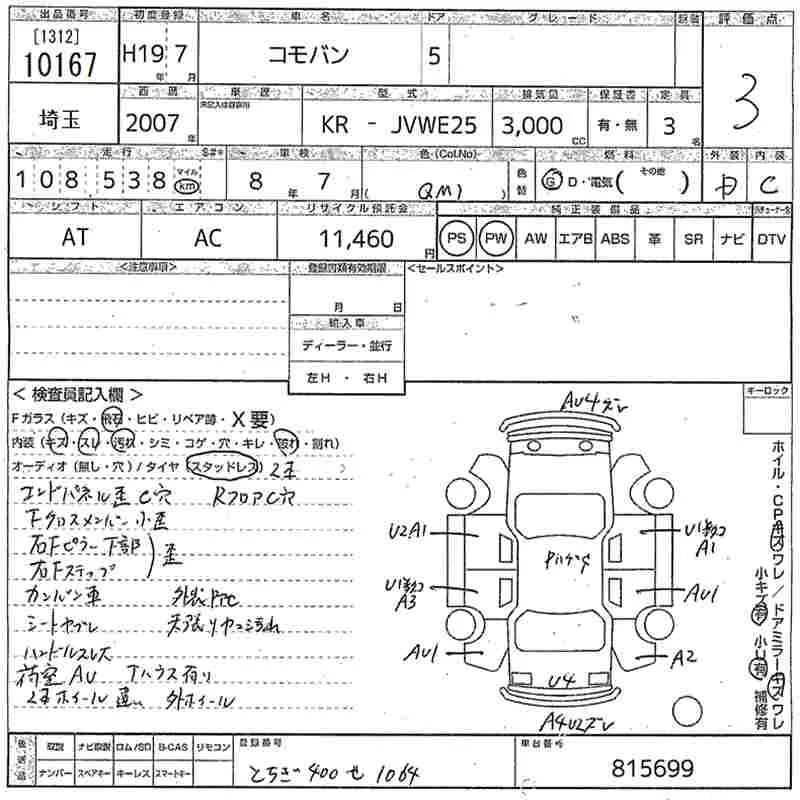 出品番号 初度登録 車名 ドア グレード 評価点
[1312]
10167 H19年 7月 コモバン 5 3
西暦 車歴 型式 排気量 保証書 定員
埼玉 2007年 KR - JVWE25 3,000cc 有・無 3名
走行 車検 色(Col.No) 燃料 外装 内装
108538 マイル km 8年 7月 ( QM1 ) 色替 G D・電気( その他 ) C
シフト エアコン リサイクル預託金 純正装備品
AT AC 11,460円 PS PW AW エアB ABS 革 SR ナビ DTV
<注意事項> 登録書類有効期限 <セールスポイント>
月 日
輸入車
ディーラー・並行
左H ・ 右H
<検査員記入欄> キーロック
Fガラス(キズ・飛石・ヒビ・リペア跡・X要)
内装(キズ・スレ・汚れ・シミ・コゲ・穴・キレ・破れ・割れ)
オーディオ(無し・穴)/タイヤ(スタッドレス)2本
エンドパネル歪 C穴 RフロアC穴
Fクロスメンバー小歪
右Fピラー下部
右Fステップ 歪
カンバン車
シートヤブレ 天張りヤニ汚れ
ハンドルスレ
荷室AU Tハウス有り
外ホイール
AU4ズレ
U2A1
A1
A3
AU1
AU1
A2
U4
A4U2ズレ
ホイール・CPキズワレ/ドアミラーキズワレ
小キズ有 小U有 補修有
後選品 取説 ナビ取説 ロム/SD B-CAS リモコン 登録番号 車台番号
ナンバー スペアキー キーレス スマートキー とちぎ 400 せ 1064 815699